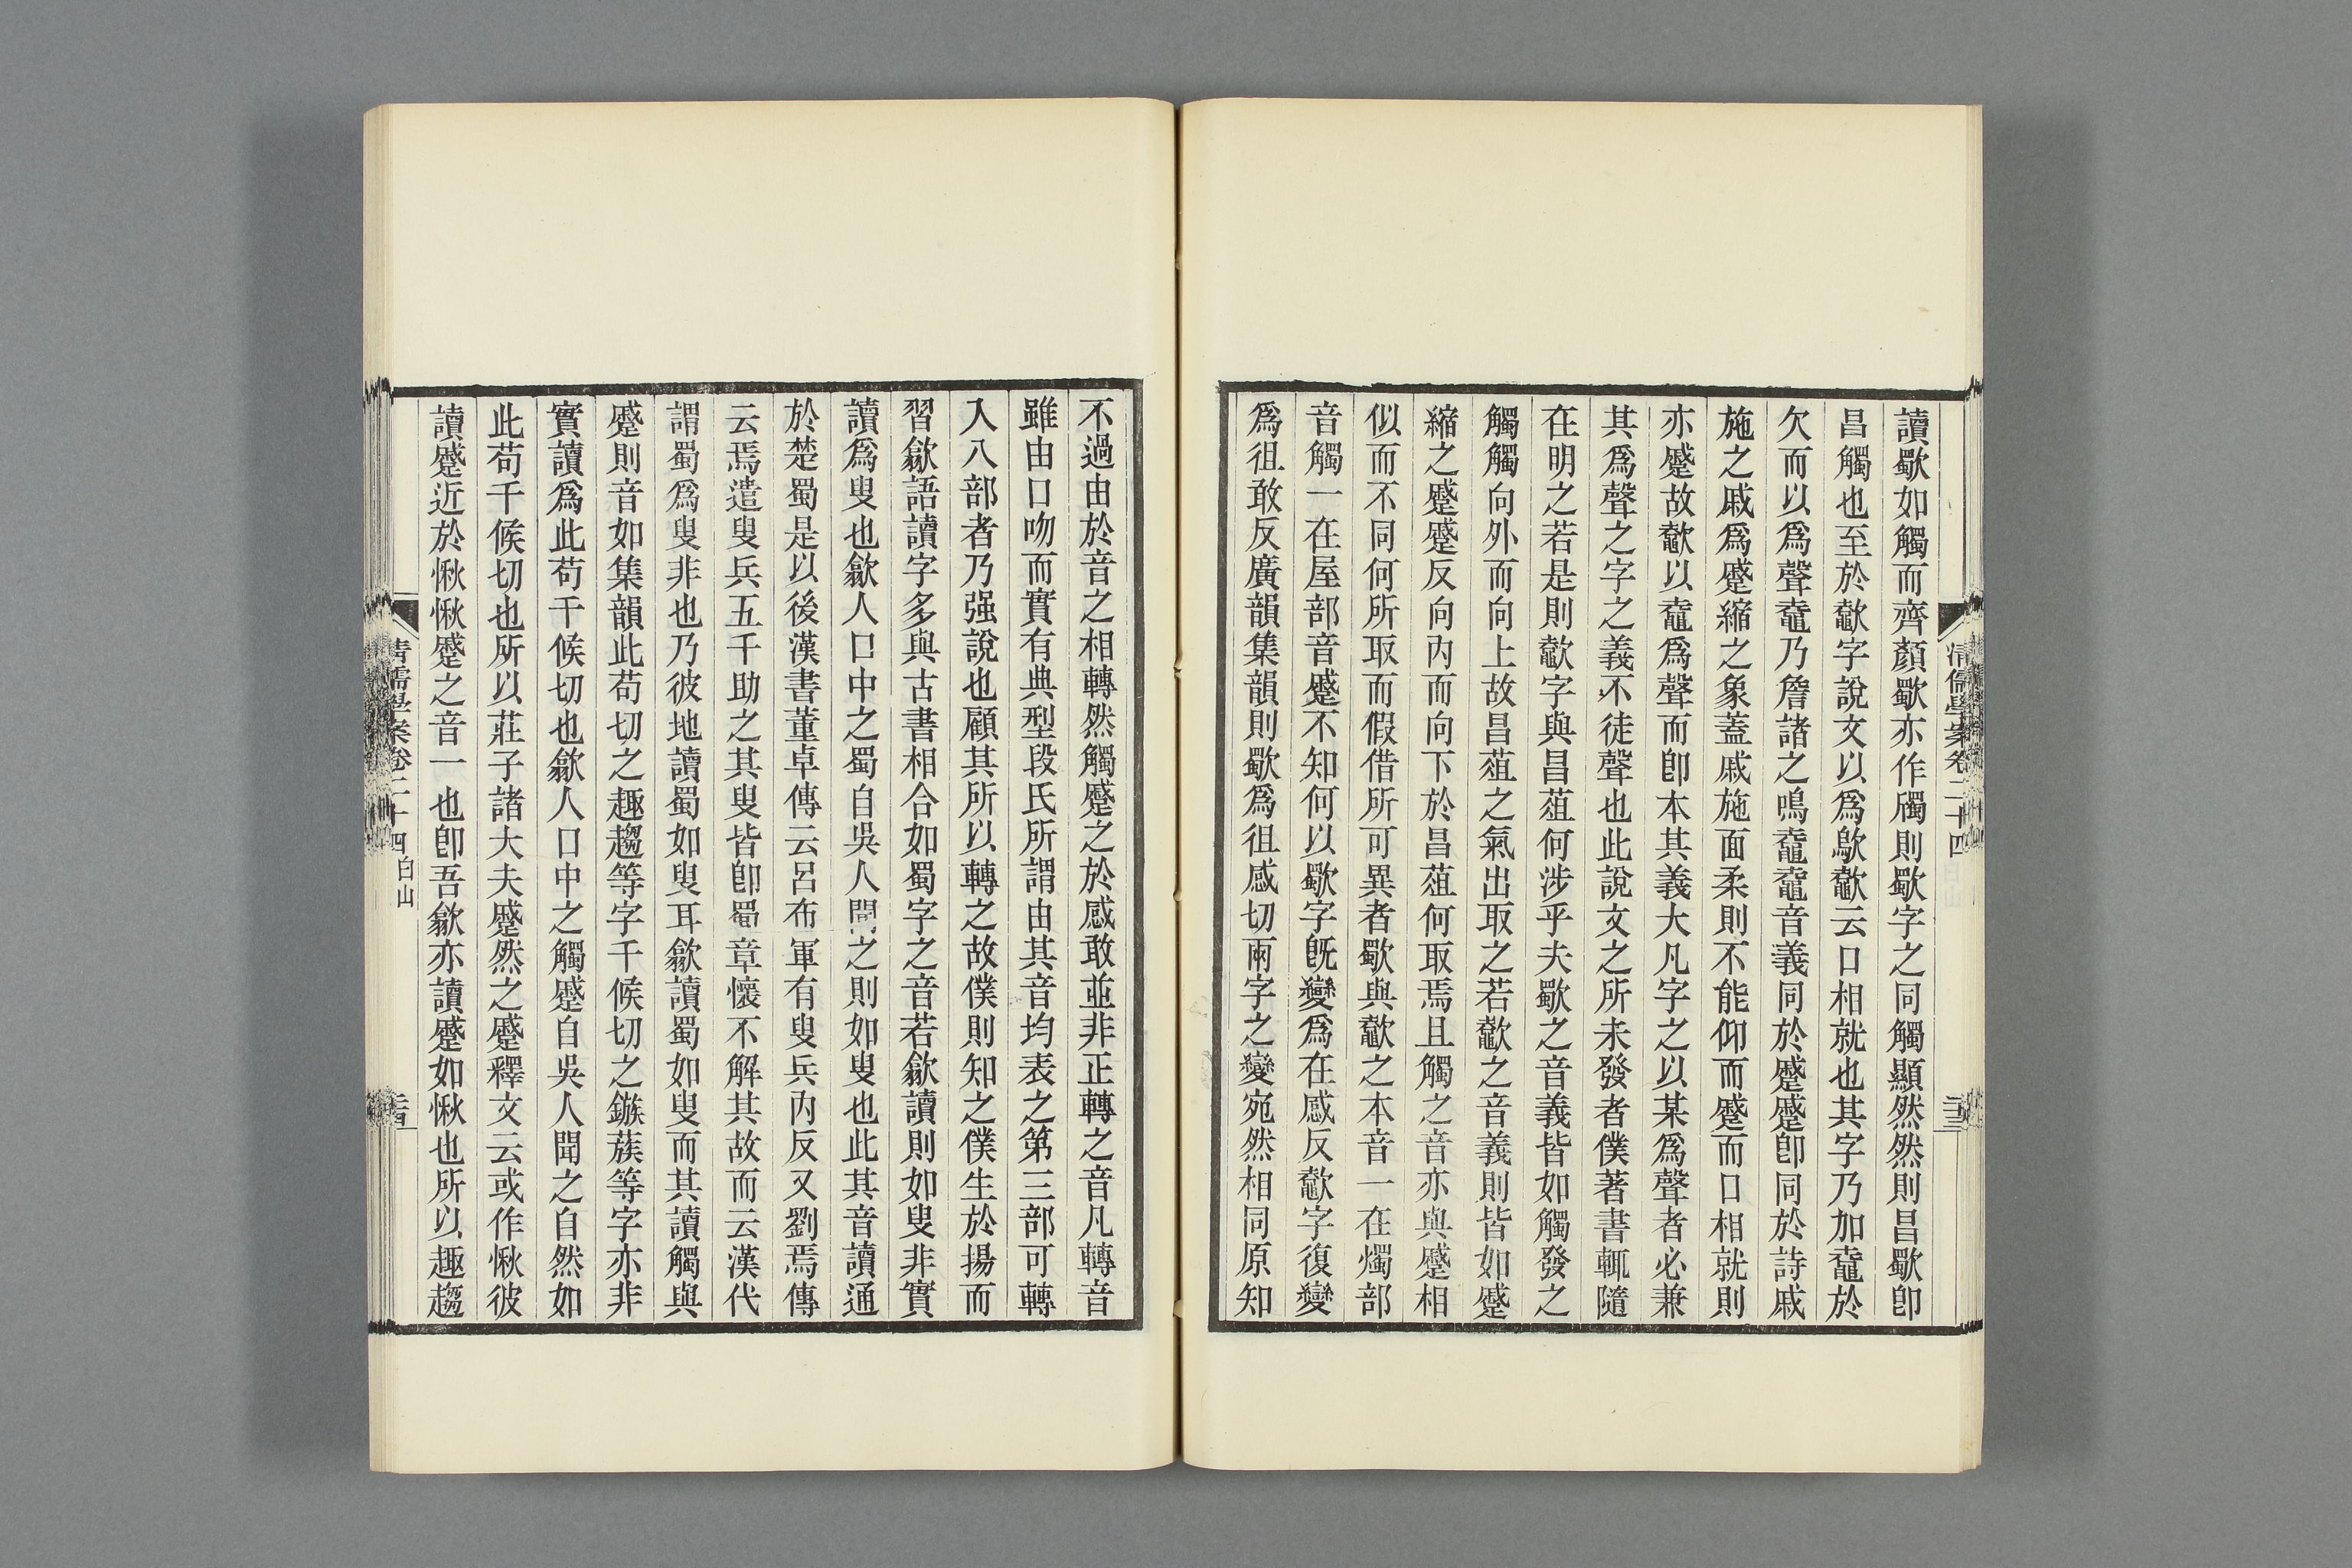 讀歜如觸而齊顏歜亦作䠱則歜字之同觸顯然然則昌歜卽
昌觸也至於歜字說文以爲歍歜云口相就也其字乃加鼀於
欠而以爲聲鼀乃詹諸之鳴鼀鼀音義同於蹙蹙卽同於詩戚
施之戚爲蹙縮之象蓋戚施面柔則不能仰而蹙而口相就則
亦蹙故歜以鼀爲聲而卽本其義大凡字之以某爲聲者必兼
其爲聲之字之義不徒聲也此說文之所未發者僕著書輒隨
在明之若是則歜字與昌蒩何涉乎夫歜之音義皆如觸發之
觸觸向外而向上故昌蒩之氣出取之若歜之音義則皆如蹙
縮之蹙蹙反向內而向下於昌蒩何取焉且觸之音亦與蹙相
似而不同何所取而假借所可異者歜與歜之本音一在燭部
音觸一在屋部音蹙不知何以歜字旣變爲在感反歜字復變
爲徂敢反廣韻集韻則歜爲徂感切兩字之變宛然相同原知
清儒學案卷二十四
二十三
不過由於音之相轉然觸蹙之於感敢並非正轉之音凡轉音
雖由口吻而實有典型段氏所謂由其音均表之第三部可轉
入八部者乃强說也顧其所以轉之故僕則知之僕生於揚而
習歙語讀字多與古書相合如蜀字之音若歙讀則如叟非實
讀爲叟也歙人口中之蜀自吳人聞之則如叟也此其音讀通
於楚蜀是以後漢書董卓傳云呂布軍有叟兵內反又劉焉傳
云焉遣叟兵五千助之其叟皆卽蜀章懷不解其故而云漢代
謂蜀爲叟非也乃彼地讀蜀如叟耳歙讀蜀如叟而其讀觸與
蹙則音如集韻此苟切之趣趨等字千候切之鏃蔟等字亦非
實讀爲此苟千候切也歙人口中之觸蹙自吳人聞之自然如
此苟千候切也所以莊子諸大夫蹙然之蹙釋文云或作愀彼
讀蹙近於愀愀蹙之音一也卽吾歙亦讀蹙如愀也所以趣趨
清儒學案卷二十四 白山